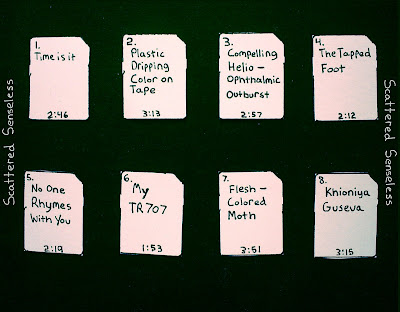 Scattered Senseless
1.
Time is it
2:46
2.
Plastic
Dripping
Color on
Tape
3:13
3.
Compelling
Helio -
Ophthalmic
Outburst
2:57
4.
The Tapped
Foot
2:12
5.
No One
Rhymes
With You
2:19
6.
My
TR707
1:53
7.
Flesh -
Colored
Moth
3:51
8.
Khioniya
Guseva
3:15
Scattered Senseless